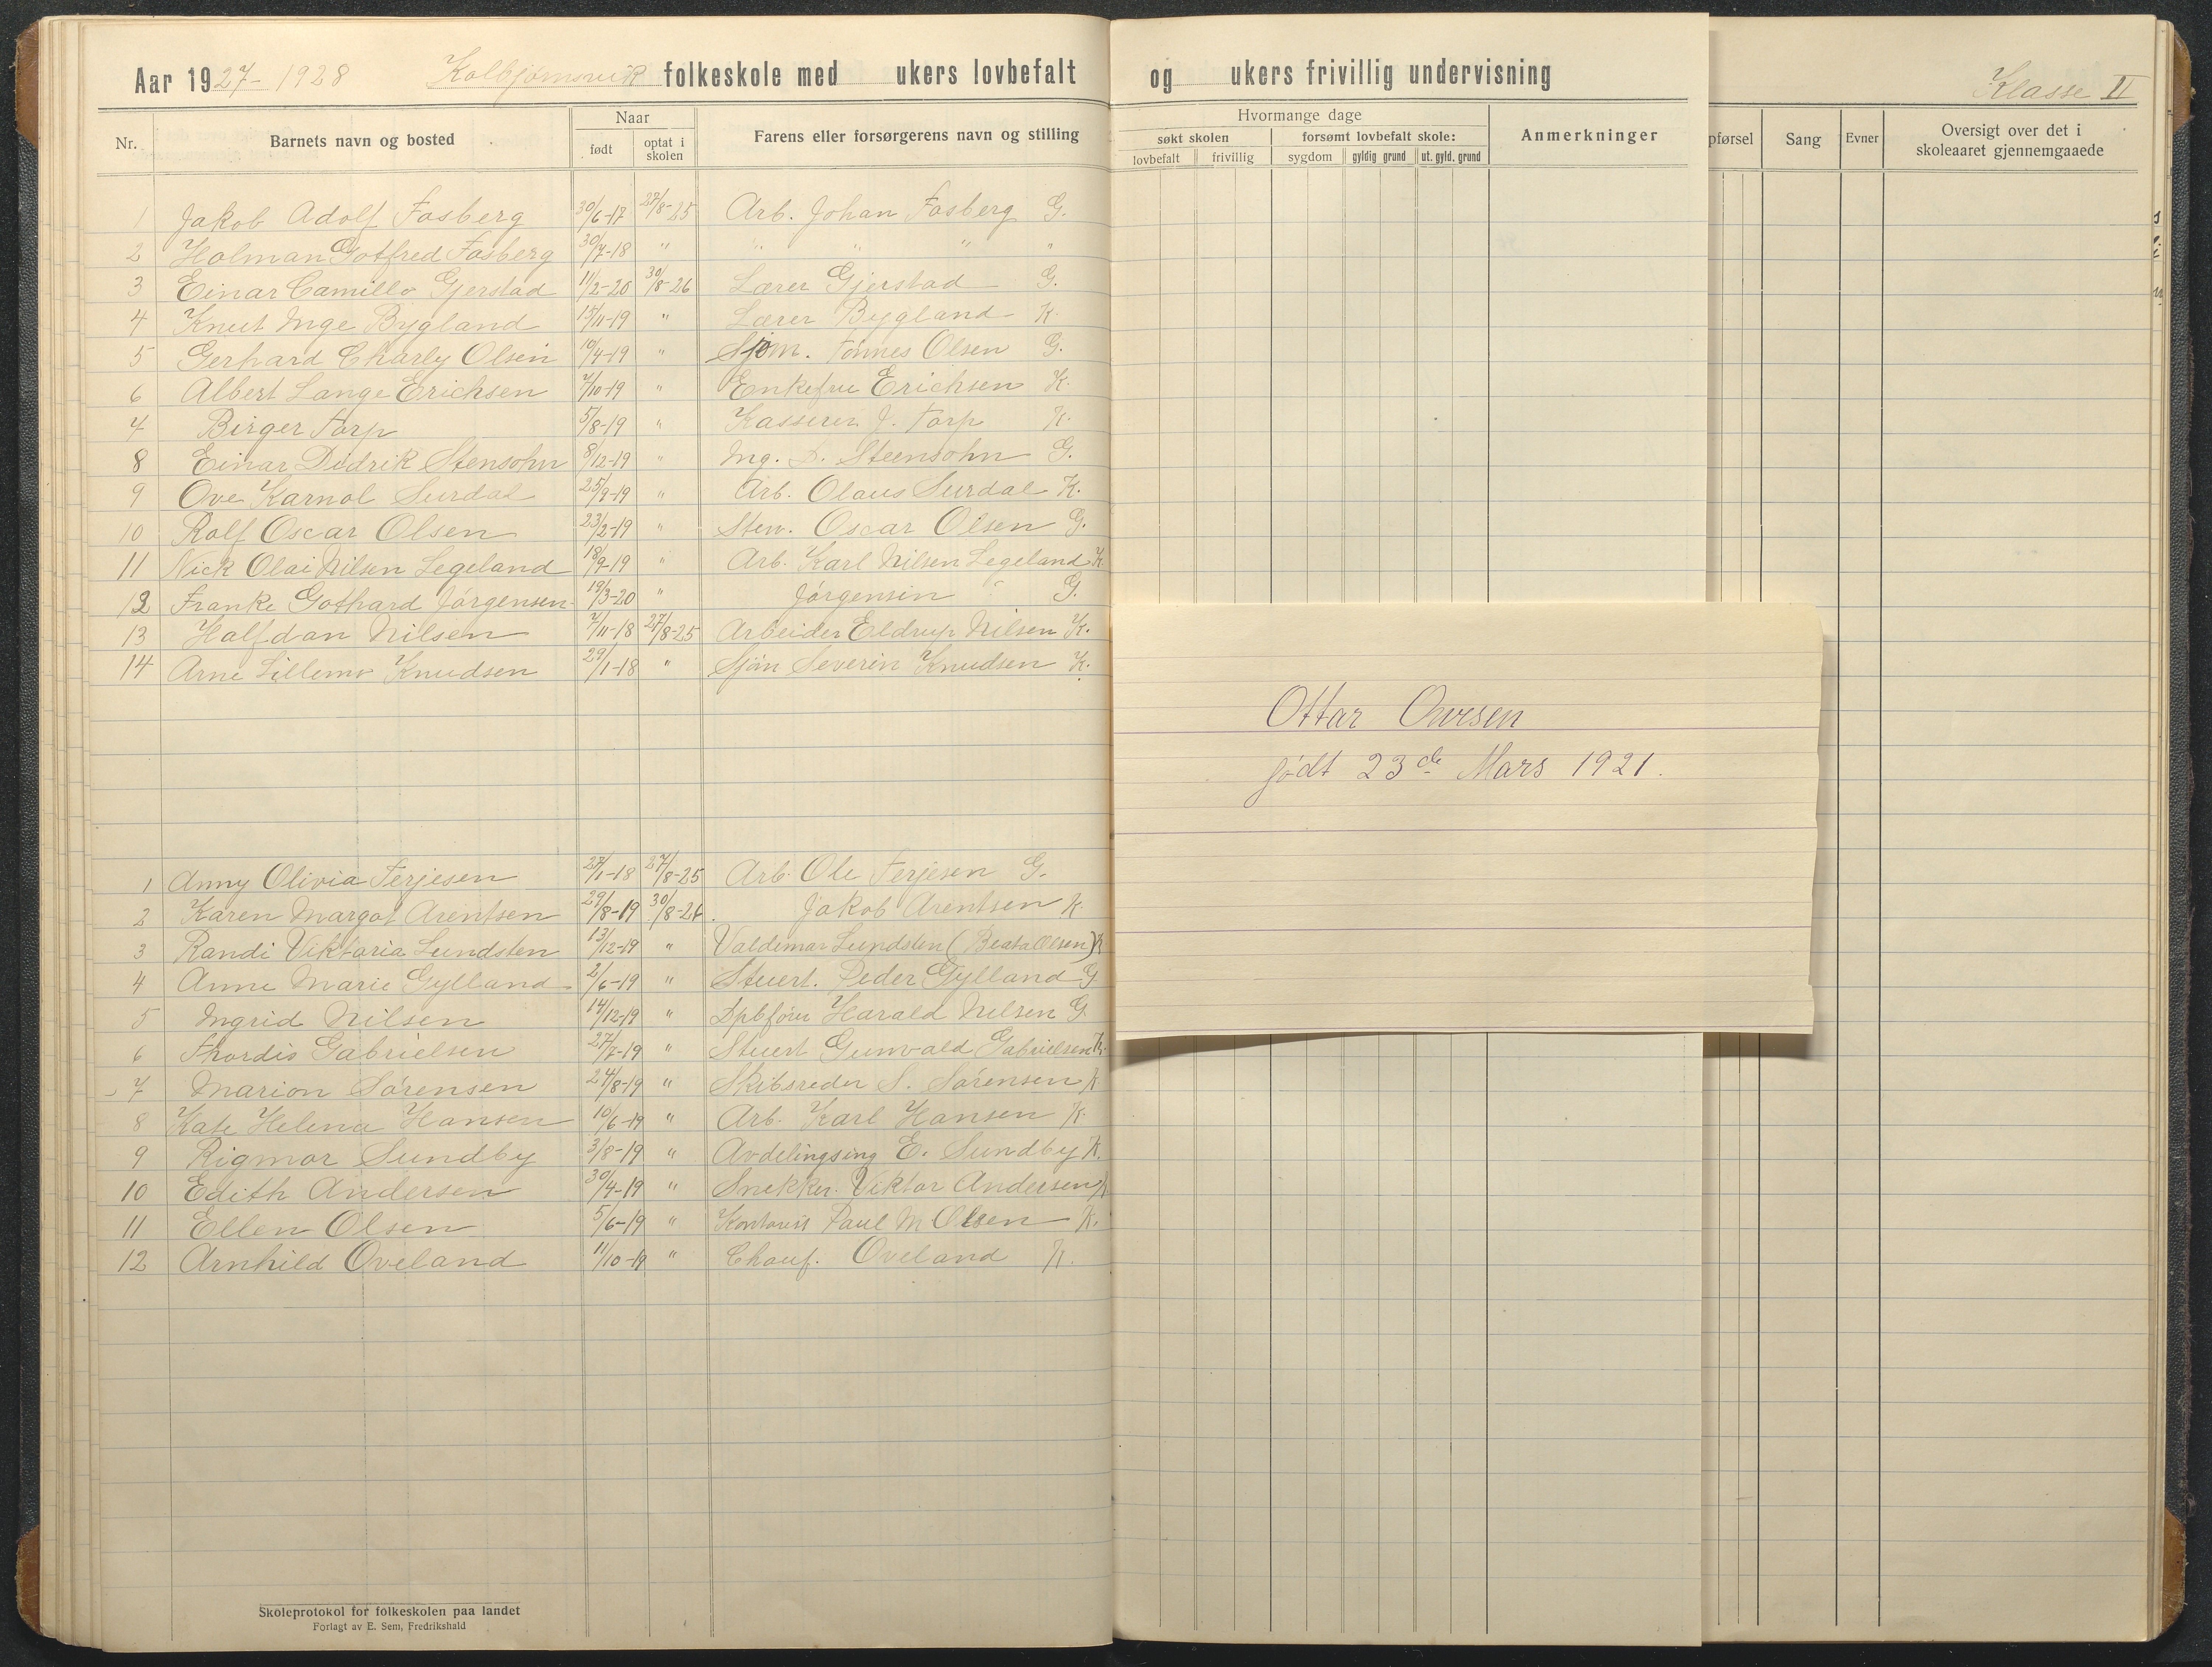 Aar 1927-1928 Kolbjørnsvik folkeskole med ukers lovbefalt og ukers frivillig undervisning Klasse II
Nr. Barnets navn og bosted Naar født optat i skolen Farens eller forsørgerens navn og stilling
Hvormange dage
søkt skolen forsømt lovbefalt skole: Anmerkninger
lovbefalt frivillig sygdom gyldig grund ut. gyld. grund
pførsel Sang Evner Oversigt over det i skoleaaret gjennemgaaede
1 Jakob Adolf Fosberg 30/6-17 27/8-25 Arb. Johan Fosberg G.
2 Holman Gotfred Fosberg 30/7-18 " " " " "
3 Einar Camillo Gjerstad 11/2-20 30/8-26 Lærer Gjerstad G.
4 Knut Inge Bygland 15/11-19 " Lærer Bygland - K.
5 Gerhard Charly Olsen 10/4-19 " Sjøm. Tønnes Olsen G.
6 Albert Lange Erichsen 7/10-19 " Enkefru Erichsen K.
7 Birger Torp 5/8-19 " Kasserer J. Torp K.
8 Einar Didrik Stensohn 8/12-19 " Ing. D. Steensohn G.
9 Ove Karnol Surdal 25/9-19 " Arb. Olaus Surdal K.
10 Rolf Oscar Olsen 23/2-19 " Stew. Oscar Olsen G.
11 Nick Olai Nilsen Legeland 18/9-19 " Arb. Karl Nilsen Legeland K
12 Franke Gothard Jørgensen 19/3-20 " Jørgensen G.
13 Halfdan Nilsen 7/11-18 27/8-25 Arbeider Eldrup Nilsen K.
14 Arne Lillemo Knudsen 29/1-18 " Sjøm Severin Knudsen K.
Ottar Ovesen
født 23de Mars 1921.
1 Anny Olivia Terjesen 27/1-18 27/8-25 Arb. Ole Terjesen G.
2 Karen Margot Arentsen 29/8-19 30/8-26. Jakob Arentsen K.
3 Randi Viktoria Lundsten 13/12-19 " Valdemar Lundsten (Beata Olsen) K
4 Anne Marie Gylland 2/6-19 " Stuert. Peder Gylland G
5 Ingrid Nilsen 14/12-19 " Dpbfører Harald Nilsen G
6 Thordis Gabrielsen 27/7-19 " Stuert Gunvald Gabrielsen K.
7 Marion Sørensen 24/8-19 " Skibsreder S. Sørensen K
8 Kate Helena Hansen 10/6-19 " Arb. Karl Hansen K.
9 Rigmor Sundby 3/8-19 " Avdelingsing E. Sundby K.
10 Edith Andersen 30/4-19 " Snekker. Viktor Andersen K
11 Ellen Olsen 5/6-19 " Kontorist Paul M Olsen K.
12 Arnhild Oveland 11/10-19 " Chauf. Oveland K.
Skoleprotokol for folkeskolen paa landet
Forlagt av E. Sem, Fredrikshald